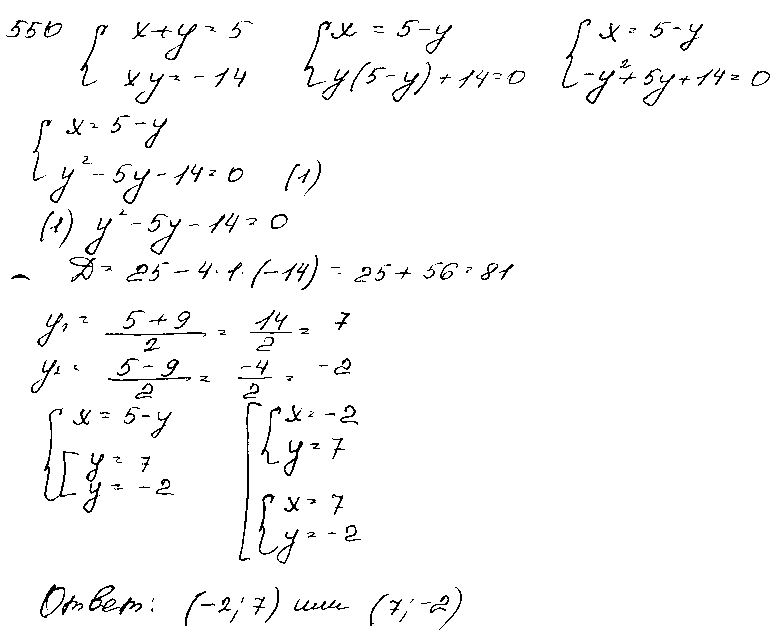 550 { x+y=5 { x = 5-y { x = 5-y
xy = -14 y(5-y)+14=0 -y²+5y+14=0
{ x = 5-y
y²-5y-14=0 (1)
(1) y²-5y-14=0
D = 25-4·1·(-14) = 25+56=81
y₁ = (5+9)/2 = 14/2 = 7
y₂ = (5-9)/2 = -4/2 = -2
{ x = 5-y [ { x = -2
[ y = 7 y = 7
y = -2 { x = 7
y = -2
Ответ: (-2; 7) или (7; -2)